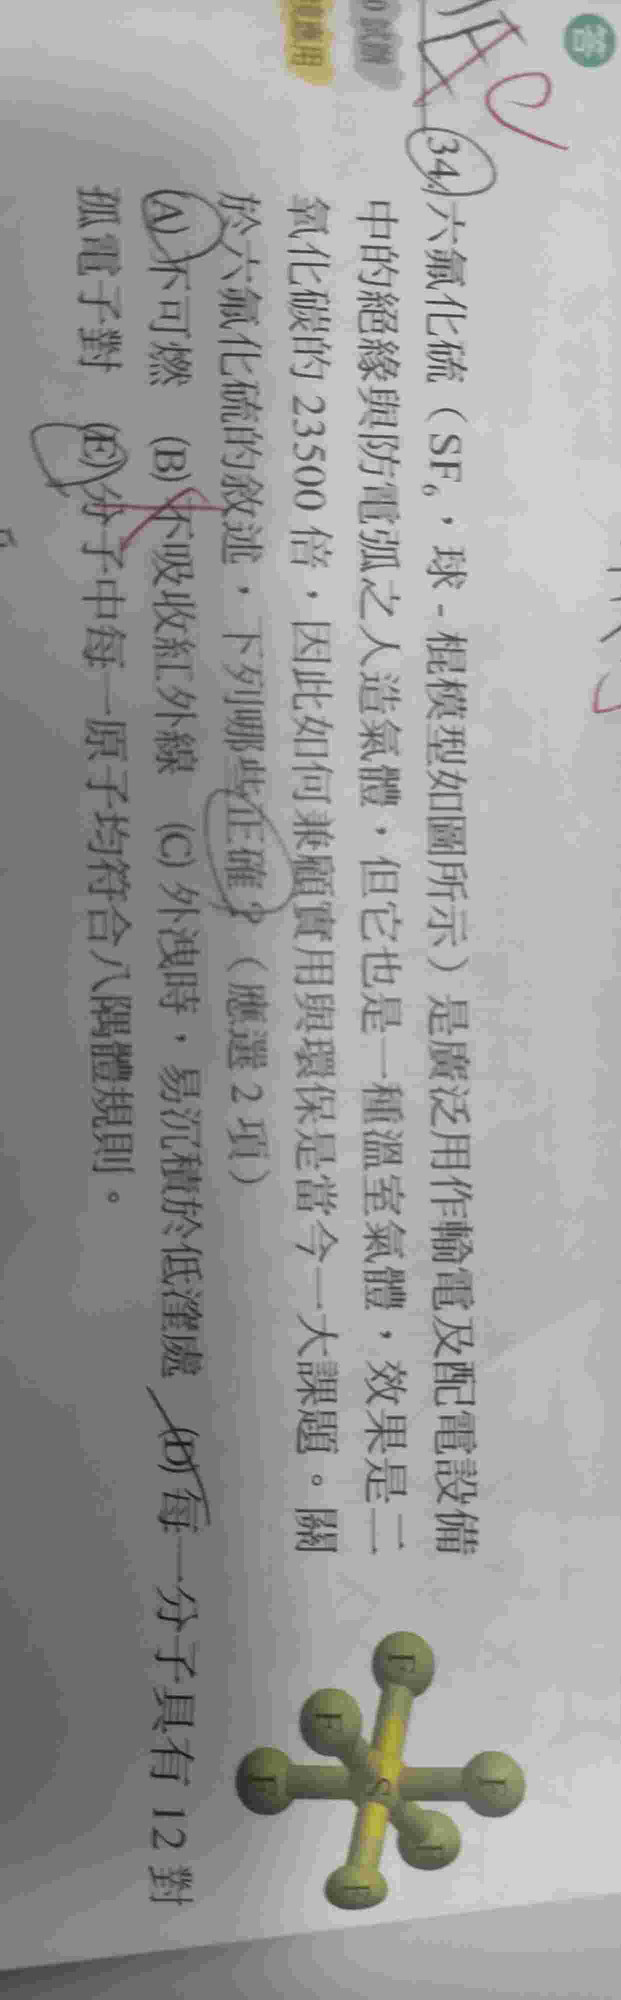 答
34. 六氟化硫（SF₆，球-棍模型如圖所示）是廣泛用作輸電及配電設備
中的絕緣與防電弧之人造氣體，但它也是一種溫室氣體，效果是二
氧化碳的 23500 倍，因此如何兼顧實用與環保是當今一大課題。關
於六氟化硫的敘述，下列哪些正確？（應選 2 項）
(A) 不可燃 (B) 不吸收紅外線 (C) 外洩時，易沉積於低漥處 (D) 每一分子具有 12 對
孤電子對 (E) 分子中每一原子均符合八隅體規則。
F
F
F
S
F
F
F